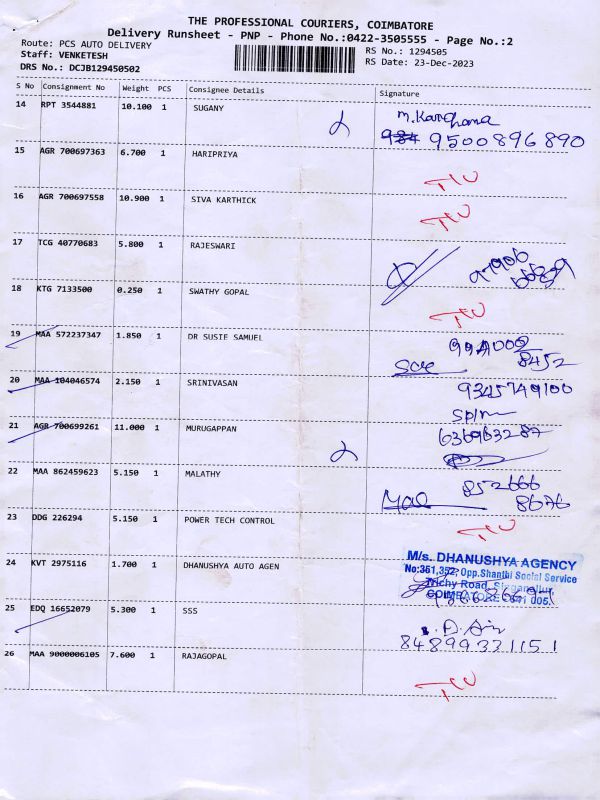 THE PROFESSIONAL COURIERS, COIMBATORE
Delivery Runsheet - PNP - Phone No.:0422-3505555 - Page No.:2
Route: PCS AUTO DELIVERY
RS No.: 1294505
Staff: VENKETESH
RS Date: 23-Dec-2023
DRS No.: DCJB129450502
S No Consignment No Weight PCS Consignee Details Signature
14 RPT 3544881 10.100 1 SUGANY
9500896890
15 AGR 700697363 6.700 1 HARIPRIYA
16 AGR 700697558 10.900 1 SIVA KARTHICK
17 TCG 40770683 5.800 1 RAJESWARI
18 KTG 7133500 0.250 1 SWATHY GOPAL
19 MAA 572237347 1.850 1 DR SUSIE SAMUEL
8452
20 MAA 104046574 2.150 1 SRINIVASAN
9345749100
21 AGR 700699261 11.000 1 MURUGAPPAN
636963287
22 MAA 862459623 5.150 1 MALATHY
852666
8676
23 DDG 226294 5.150 1 POWER TECH CONTROL
24 KVT 2975116 1.700 1 DHANUSHYA AUTO AGEN
M/s. DHANUSHYA AGENCY
No:361,352, Opp.Shanthi Social Service
Trichy Road, Singanallur,
COIMBATORE - 641 005.
25 EDQ 16652079 5.300 1 SSS
84899331151
26 MAA 9000006105 7.600 1 RAJAGOPAL